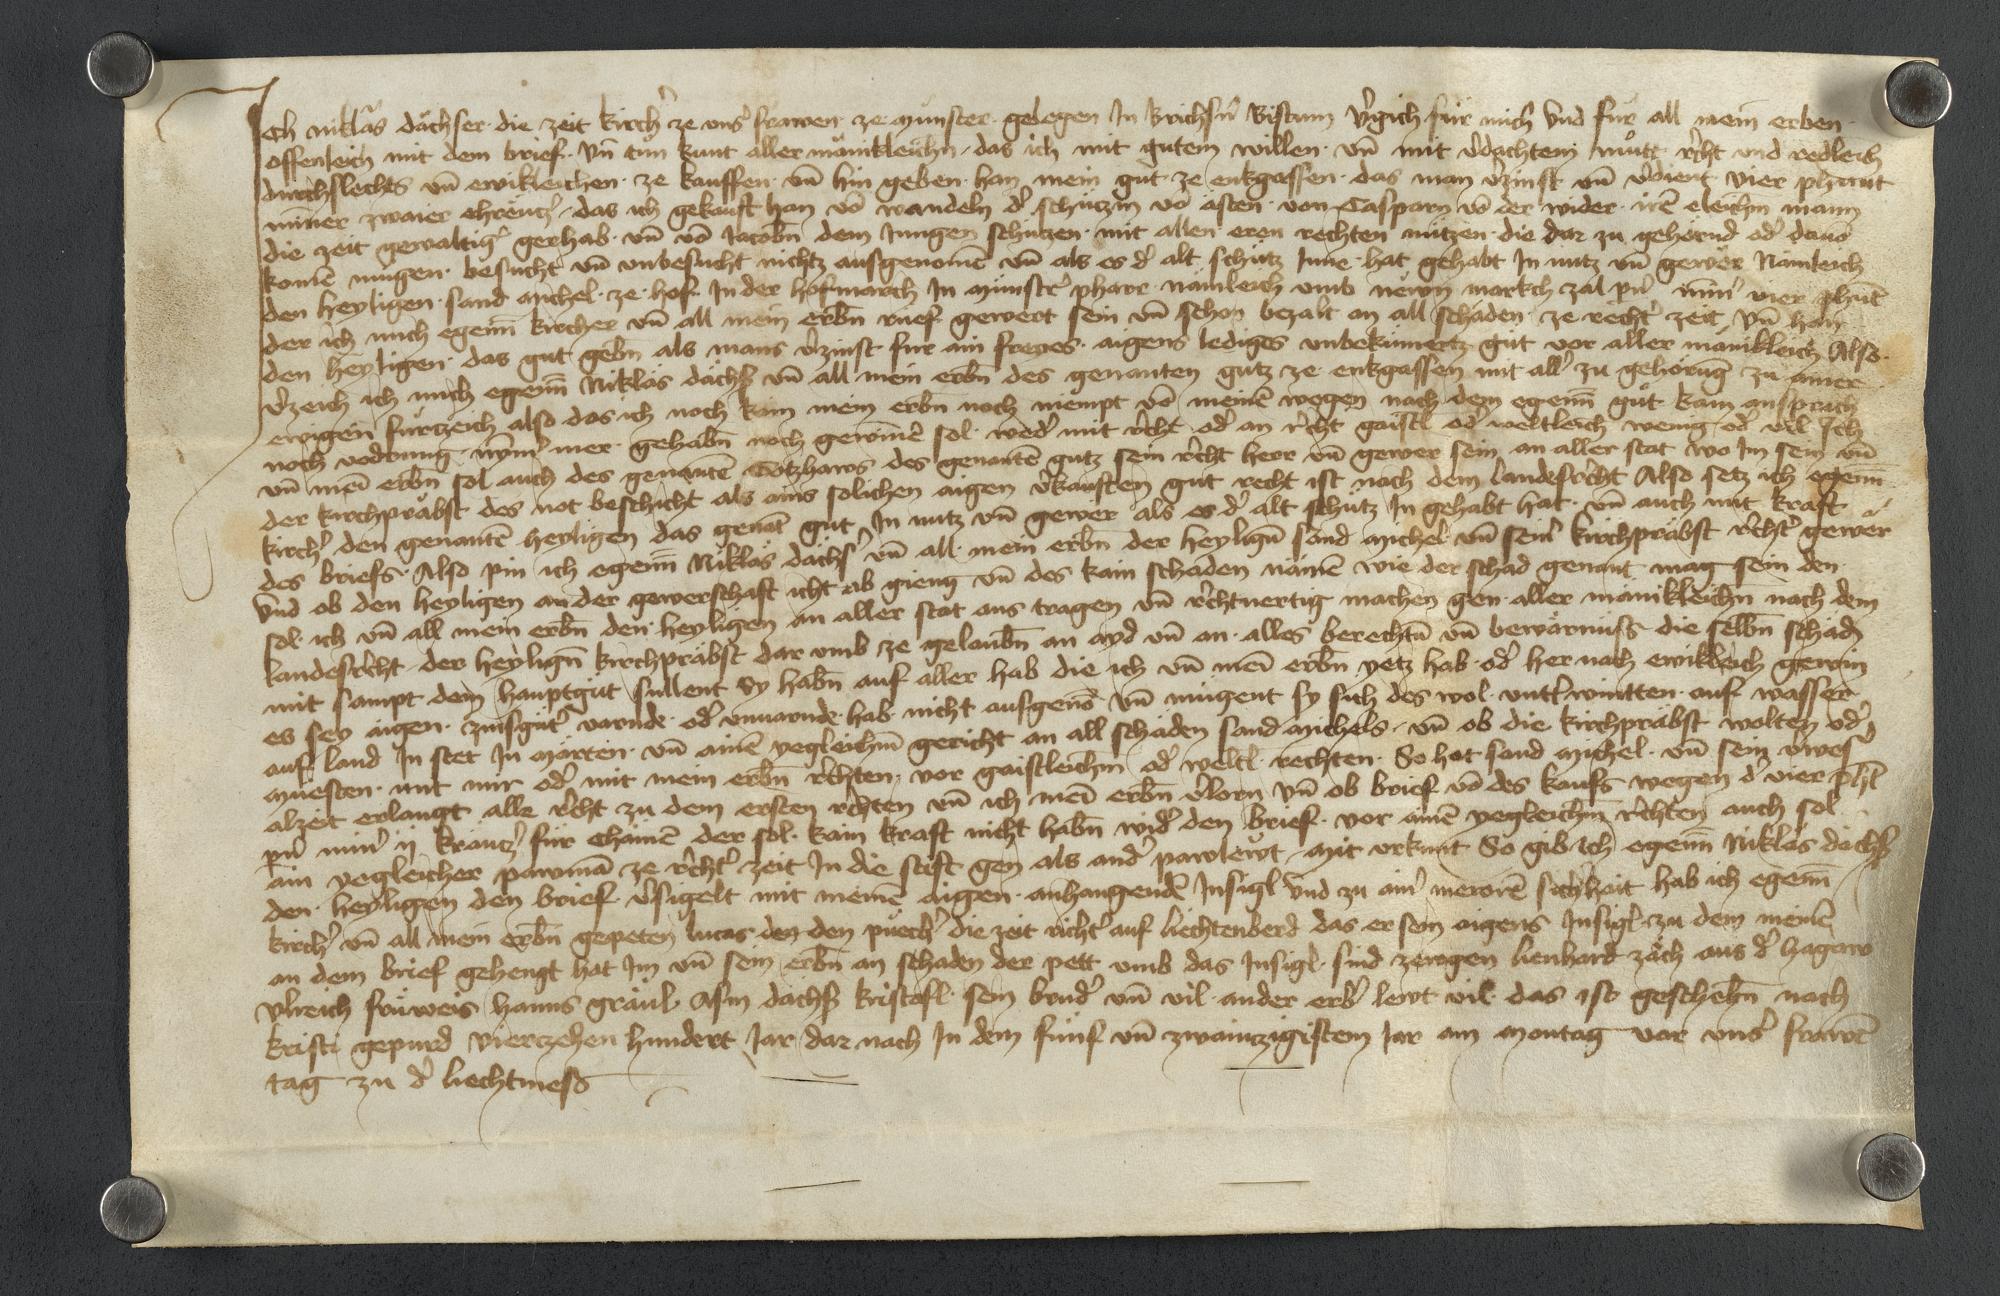 Ich niklas dächser die zeit kircher ze vnser frawen ze munster gelegen In Brichsner Bistum vergich für mich Vnd fur all mein erben
offenleich mit dem brief. Vnd tun kunt aller mänikleichn das ich mit gutem willen vnd mit verdachtem mutt recht vnd redleich
durchslechts vnd ewikleichen ze kauffen vnd hin geben han mein gut ze enkgassen das man verzinst vnd verdient vier phunt
minner zwaier chreutzer das ich gekauft han von wandeln der schutzin von ästen von Casparn von der wider iren eleichn mann
die zeit gewaltiger gerhab vnd von Jacobn dem Jungen schutzen mit allen eren rechten nützen die dar zu gehörnd oder dauon
komen mugen besucht vnd vnbesucht nichtz ausgenomen vnd als es der alt schutz Inne hat gehabt In nutz vnd gewer Namleich
den heyligen sand michel ze hof In der hofmarch In Münstrer pharr namleich vmb newn markch zal perner minner vier phunt
der ich mich egenant kircher vnd all mein erben rüef gewert sein vnd schon bezalt an all schäden ze rechter zeit vnd han
den heyligen das gut geben als mans verzinst fur ain freyes aigens lediges vnbekümertz gut vor aller mänikleich Also
verzeich ich mich egenant Niklas dächser vnd all mein erben des genanten gutz ze enkgassen mit aller zu gehörung zu ainer
ewigen furtzeich also das ich noch kain mein erben noch niempt von meinen wegen nach dem egenant gut kain ansprach
noch vodrung nymer mer gehaben noch gewinen sol weder mit recht oder an recht gaistl oder weltleich wenig oder vil Ich
vnd mein erben sol auch des genanten Gotzhaws des genanten gutz sein recht herr vnd gewer sein an aller stat wo Im sein vnd
der kirchpräbst des not beschicht als ains solichen aigen verkauften gut recht ist nach dem landesrecht Also setz ich egenant
kircher den genanten heyligen das genant gut In nutz vnd gewer als es der alt schutz In gehabt hat vnd auch mit kraft
des briefs Also pin ich egenant Niklas dächser vnd all mein erben der heyligen sand Michel vnd seiner kirchpräbst rechter gewer
Vnd ob den heyligen an der gewerschaft icht ab gieng vnd des kain schaden nämen wie der schad genant mag sein den
sol ich vnd all mein erben den heyligen an aller stat aus tragen vnd rechtuertig machen gen aller mänikleichn nach dem
landesrecht der heyligen kirchpräbst dar vmb ze gelauben an ayd vnd an alles berechten vnd bewärnuss die selben schäden
mit sampt dem hauptgut sullent sy haben auf aller hab die ich vnd mein erben yetz hab oder her nach ewikleich gewin
es sey aigen zinsgüter varnde oder vnuarnde hab nicht ausgenomen vnd mügent sy sich des wol vnterwintten auf wasser
auf land In stet In märten vnd ainem yegleichm gericht an all schäden sand michels vnd ob die kirchpräbst wolten oder
muesten mit mir oder mit mein erben rechten vor gaistleichm oder weltl rechten So hat sand michel vnd sein verweser
alzeit erlangt alle recht zu dem ersten rechten vnd ich mein erben verlorn vnd ob brief von des kaufs wegen der vier pht
perner minner ij krautzer für chämen der sol kain kraft nicht haben wider den brief vor ainem yegleichm rechten auch sol
ain yegleicher pawman ze rechter zeit In die stift gen als ander pawlewt mit vrkunt So gib ich egenant Niklas dächser
den heyligen den brief versigelt mit meinem aigen anhangenden Insigl vnd zu ainer merern sicherheit hab ich egenant
kircher vnd all mein erben gepeten lucas den den puecher die zeit richter auf liechtenberd das er sein aigens Insigl zu dem meinen
an dem brief gehengt hat Im vnd sein erben an schaden der pett vmb das Insigl sind zewgen lienhard zäch aus der hagaw
Vlreich fräweis hanns gräul Asm dächser kristofl sein bruder vnd vil ander erber lewt vil das ist geschehen nach
kristi gepurd vierczehen hundert Jar dar nach In dem fünf vnd zwaintzigistem Jar am montag vor vnser frawen
tag zu der liechtmess